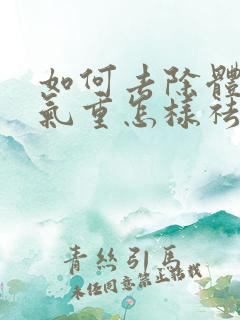 如何去除體
氣重怎樣祛
青絲引馬
未经同意禁止搭载